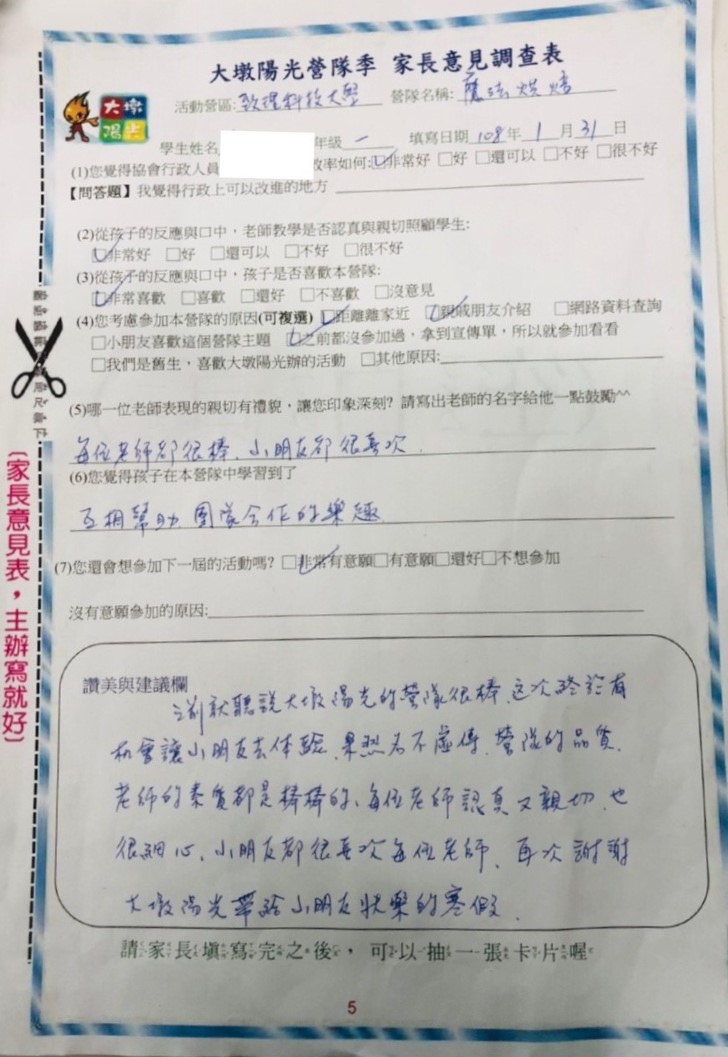 大墩陽光營隊季 家長意見調查表
大墩
陽光
活動營區:致理科技大學 營隊名稱:魔法烘焙
學生姓名 年級 一 填寫日期 108年 1 月 31 日
(1)您覺得協會行政人員 效率如何:☑非常好 □好 □還可以 □不好 □很不好
【問答題】我覺得行政上可以改進的地方
(2)從孩子的反應與口中，老師教學是否認真與親切照顧學生:
☑非常好 □好 □還可以 □不好 □很不好
(3)從孩子的反應與口中，孩子是否喜歡本營隊:
☑非常喜歡 □喜歡 □還好 □不喜歡 □沒意見
(4)您考慮參加本營隊的原因(可複選) ☑距離離家近 ☑親戚朋友介紹 □網路資料查詢
□小朋友喜歡這個營隊主題 ☑之前都沒參加過，拿到宣傳單，所以就參加看看
□我們是舊生，喜歡大墩陽光辦的活動 □其他原因:
(5)哪一位老師表現的親切有禮貌，讓您印象深刻? 請寫出老師的名字給他一點鼓勵^^
每位老師都很棒、小朋友都很喜欢.
(6)您覺得孩子在本營隊中學習到了
互相幫助 團隊合作的樂趣
(7)您還會想參加下一屆的活動嗎? ☑非常有意願□有意願□還好□不想參加
沒有意願參加的原因:
讚美與建議欄
之前就聽說大墩陽光的營隊很棒.这次終於有
机會讓小朋友去体驗.果然名不虛傳.營隊的品質.
老師的素質都是棒棒的、每位老師認真又親切.也
很細心、小朋友都很喜欢每位老師.再次謝謝
大墩陽光帶給小朋友快樂的寒假.
請家長填寫完之後，可以抽一張卡片喔
[家長意見表，主辦寫就好]
5